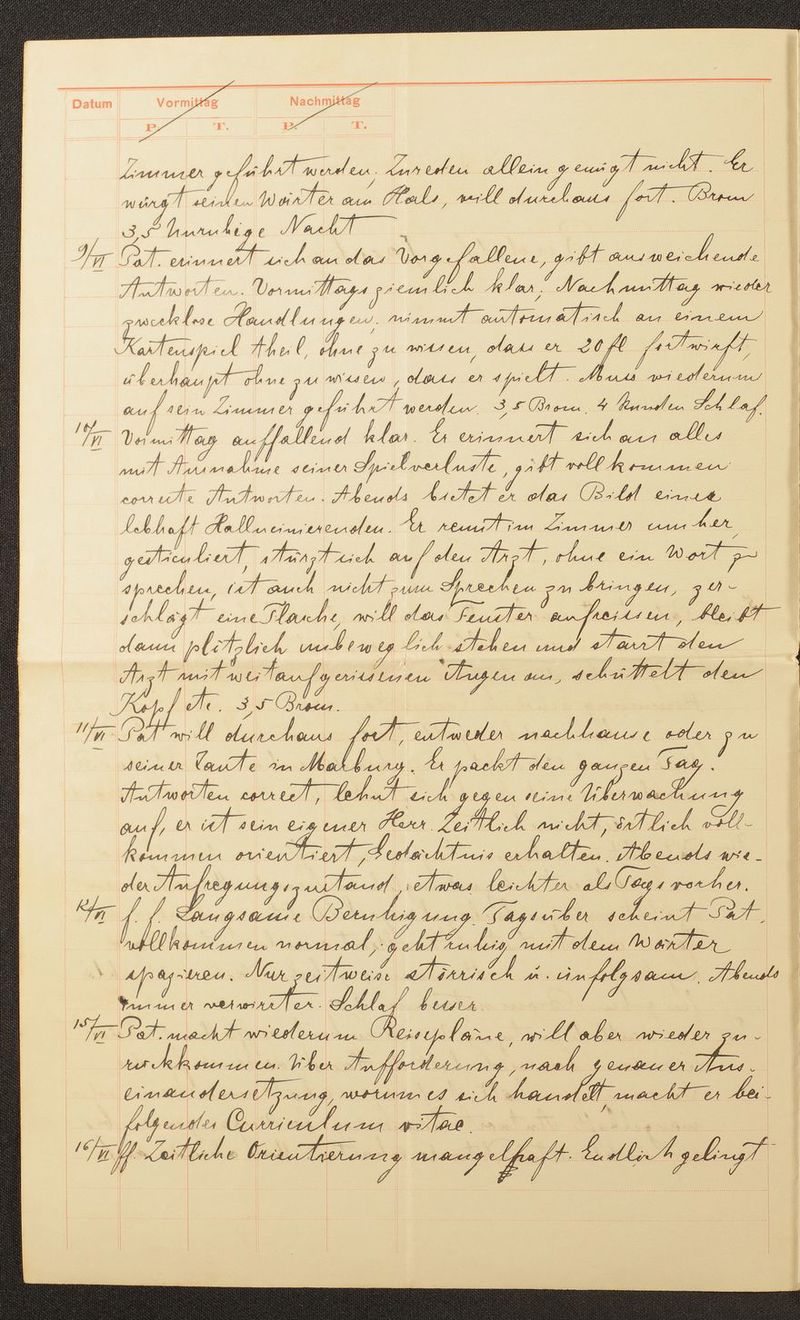 Datum Vormittag Nachmittag
P. T. P. T.
Zimmer geführt werden, Zureden allein genügt nicht. Er
würgt seinen Wärter am Hals, will durchaus fort. Brom
3,5 Unruhige Nacht
9/VI Pat. erinnert sich an das Vorgefallene, gibt ausweichende
Antworten. Vormittags ziemlich klar, Nachmittag wieder
zwecklose Handlungen, nimmt automatisch an einem
Kartenspiel theil, ohne zu wissen, dass er 20 fl fortwirft,
überhaupt ohne zu wissen, dass er spielt. Muss wiederum
auf sein Zimmer geführt werden. 3,5 Brom. 4 Stunden Schlaf.
10/VI Vormittag auffallend klar. Er erinnert sich an alles
mit Ausnahme seiner Spielverluste, gibt vollkommen
correcte Antworten. Abends bietet er das Bild eines
lebhaft Hallucinierenden. Er rennt im Zimmer umher,
gesticuliert, stürzt sich auf den Arzt, ohne ein Wort zu
sprechen, ist auch nicht zum Sprechen zu bringen, zer-
schlägt eine Flasche, will das Fenster aufreissen, bleibt
dann plötzlich unbeweglich stehen und starrt den
Arzt mit weitaufgerissenen Augen an, schüttelt den
Kopf etc. 3,5 Brom.
11/VI Pat will durchaus fort, entweder nachhause oder zu
seiner Tante in Marburg. Er packt den ganzen Tag.
Antworten correct, lehnt sich gegen seine Überwachung
auf, er ist sein eigener Herr. Zeitlich nicht, örtlich voll-
kommen orientiert, Gedächtnis erhalten. Abends wie-
der Aufregungszustand, etwas leichter als Tags vorher.
12/VI f. f. Langsame Beruhigung. Tagsüber scheint Pat.
vollkommen normal, geht ruhig mit dem Wärter
spazieren. Nur zeitweise störrisch u. unfolgsam. Abends
immer verwirrter. Schlaf besser
15/VI Pat. macht wiederum Reisepläne, will aber wieder zu-
rückkommen. Über Aufforderung, nach genauer Aus-
einandersetzung, worum es sich handelt, macht er bei-
folgendes Curriculum vitae.
16/VI ff. Zeitliche Orientierung mangelhaft. Endlich gelingt